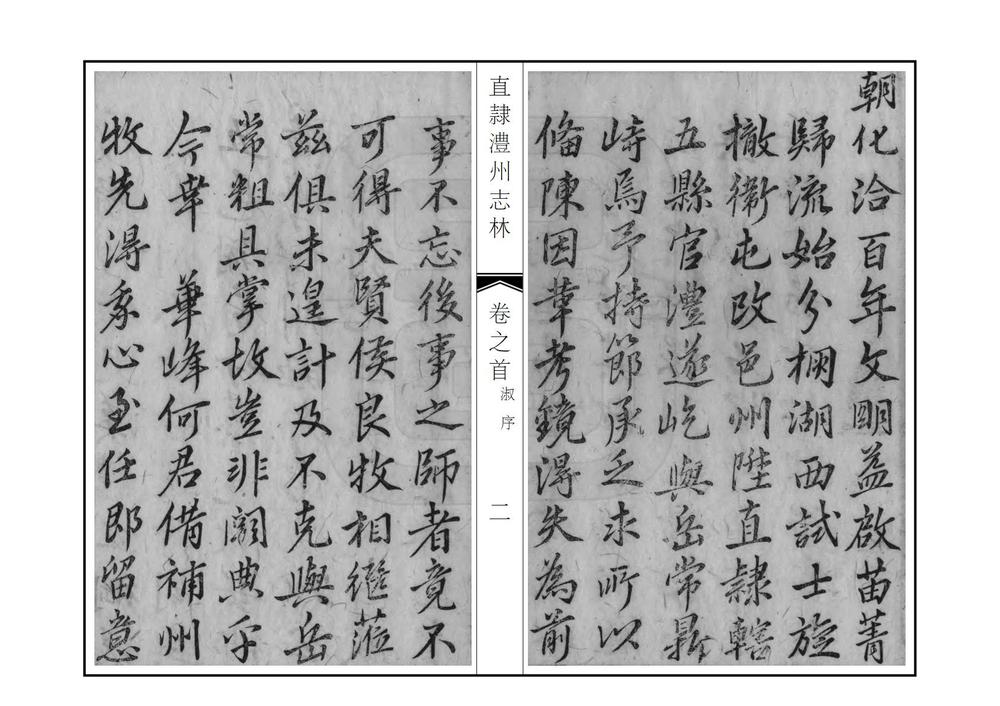 朝化洽百年文明益啟苗菁
歸流始分棚湖西試士旋
撤衞屯改邑州陞直隸轄
五縣官澧遂屹與岳常鼎
峙焉予持節承乏求所以
俻陳因革考鏡得失為前
直隸澧州志林
卷之首
淑序
二
事不忘後事之師者竟不
可得夫賢侯良牧相繼蒞
茲俱未遑計及不克與岳
常粗具掌故豈非闕典乎
今幸 華峰何君備補州
牧先得余心至任即留意